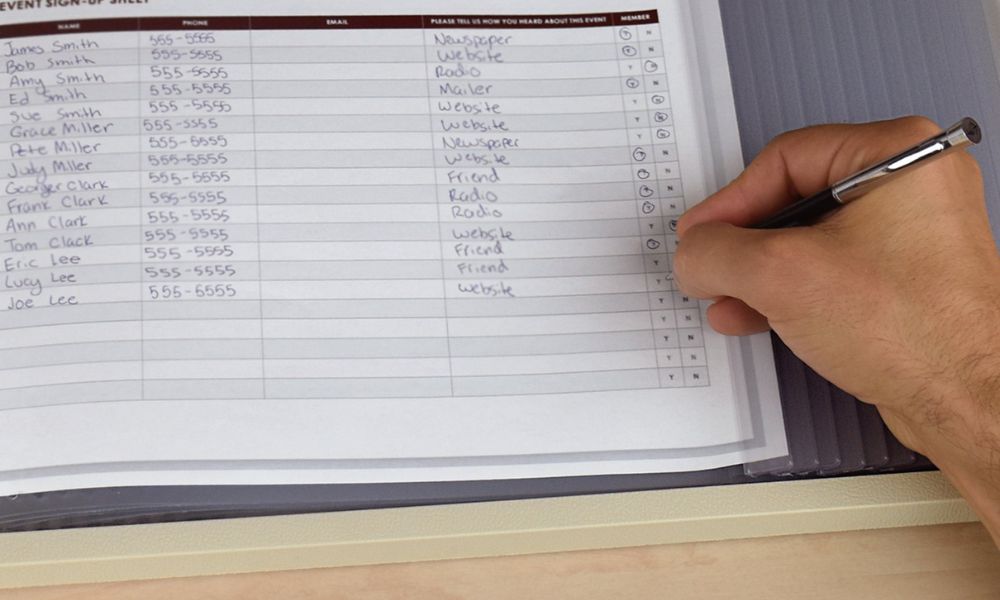 EVENT SIGN-UP SHEET
NAME PHONE EMAIL PLEASE TELL US HOW YOU HEARD ABOUT THIS EVENT MEMBER
James Smith 555-5555 Newspaper Y N
Bob Smith 555-5555 Website Y N
Amy Smith 555-5555 Radio Y N
Ed Smith 555-5555 Mailer Y N
Sue Smith 555-5555 Website Y N
Grace Miller 555-5555 Website Y N
Pete Miller 555-5555 Newspaper Y N
Judy Miller 555-5555 Website Y N
George Clark 555-5555 Friend Y N
Frank Clark 555-5555 Radio Y N
Ann Clark 555-5555 Radio Y N
Tom Clack 555-5555 Website Y N
Eric Lee 555-5555 Friend Y
Lucy Lee 555-5555 Friend Y
Joe Lee 555-5555 Website Y
Y N
Y N
Y N
Y N
Y N